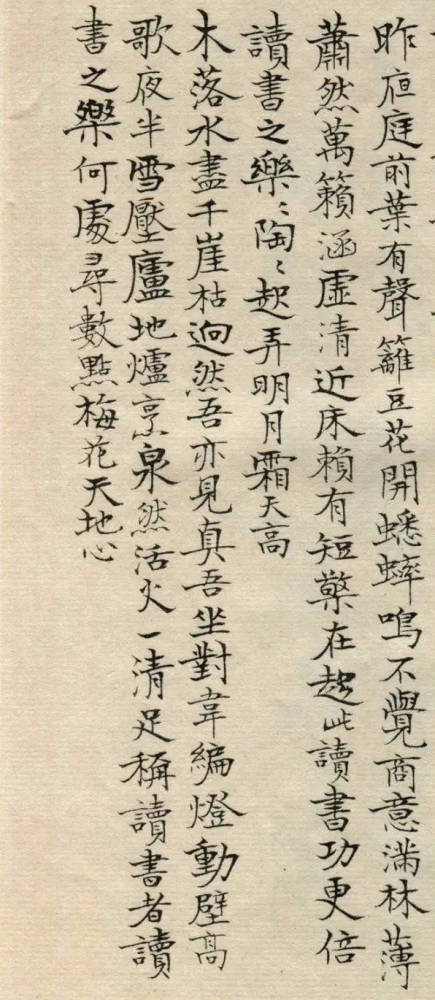 昨夜庭前葉有聲籬豆花開蟋蟀鳴不覺商意滿林薄
蕭然萬籟涵虛清近床賴有短檠在趁此讀書功更倍
讀書之樂〻陶〻起弄明月霜天高
木落水盡千崖枯迥然吾亦見真吾坐對韋編燈動壁高
歌夜半雪壓廬地爐烹泉然活火一清足稱讀書者讀
書之樂何處尋數點梅花天地心